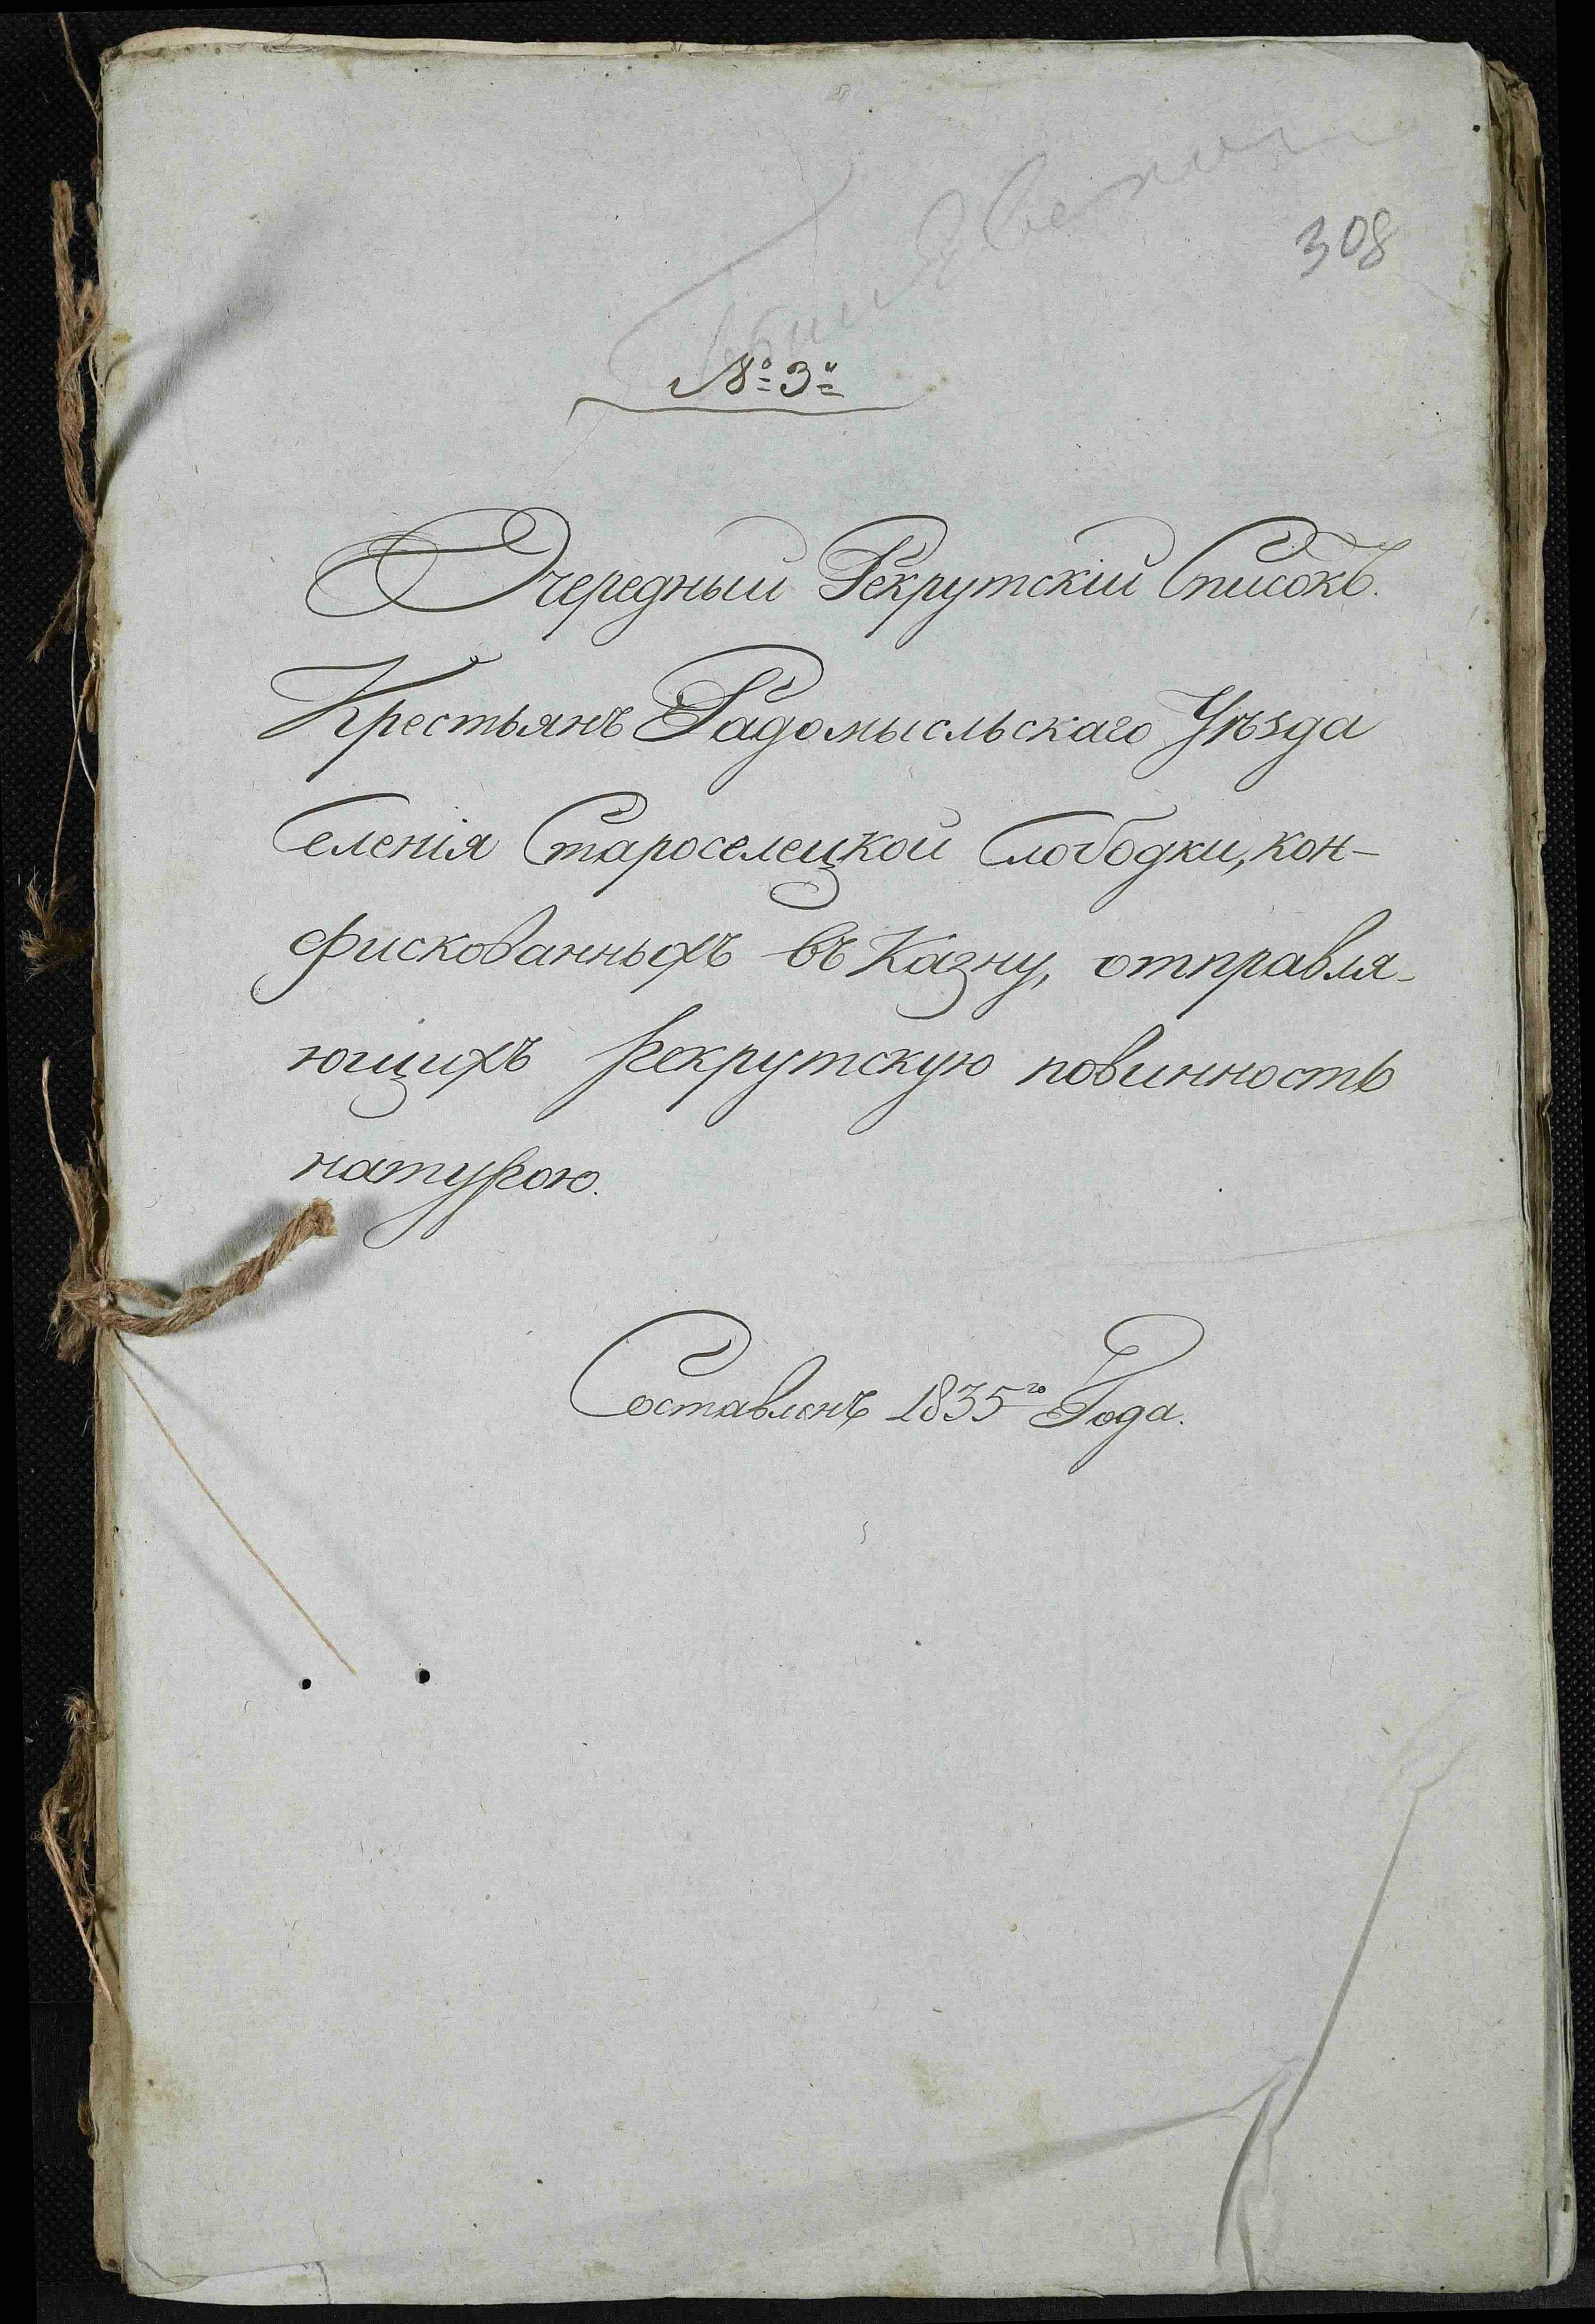 308
№ 3й
Очередный Рекрутскій Списокъ.
Крестьянъ Радомысльскаго Уѣзда
Селенія Староселецкой Слободки, кон-
фискованныхъ въ Казну, отправля-
ющихъ рекрутскую повинность
натурою.
Составленъ 1835го Года.